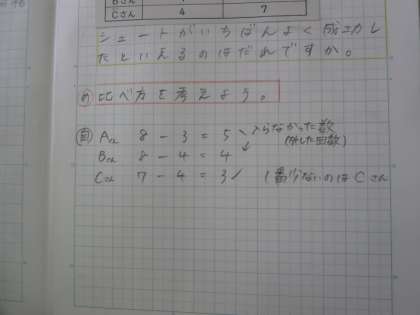 Cさん 4 7
シュートがいちばんよく成功し
たといえるのはだれですか。
め 比べ方を考えよう。
自 Aさん 8 - 3 = 5 入らなかった数
(外した回数)
Bさん 8 - 4 = 4
Cさん 7 - 4 = 3 1番少ないのはCさん